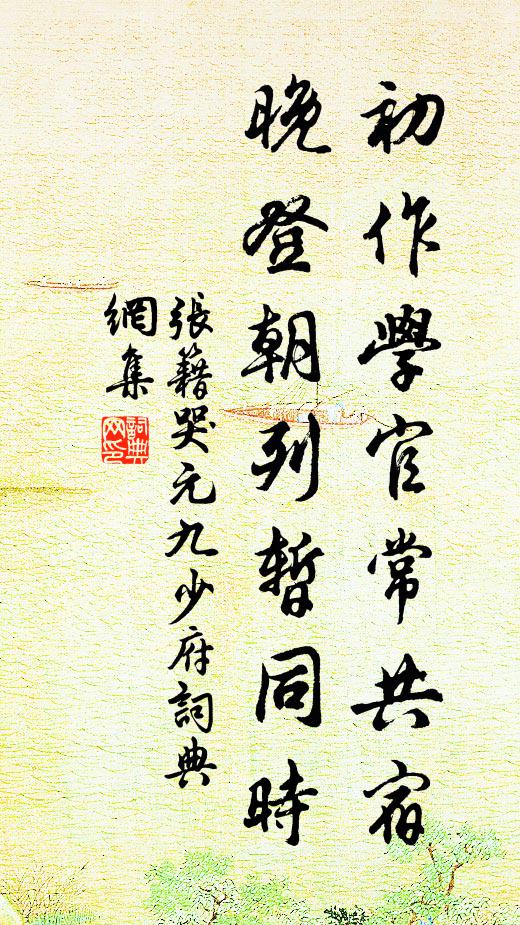 初作學官常共宿
晚登朝列暫同時
張籍哭元九少府詞典
網集
詞典网印